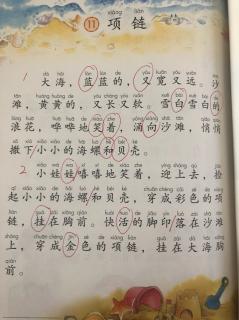 xiàng liàn
11 项链
1 大海，蓝蓝的，又宽又远。沙
滩，黄黄的，又长又软。雪白雪白的
浪花，哗哗地笑着，涌向沙滩，悄悄
撒下小小的海螺和贝壳。
2 小娃娃嘻嘻地笑着，迎上去，捡
起小小的海螺和贝壳，穿成彩色的项
链，挂在胸前。快活的脚印落在沙滩
上，穿成金色的项链，挂在大海胸
前。